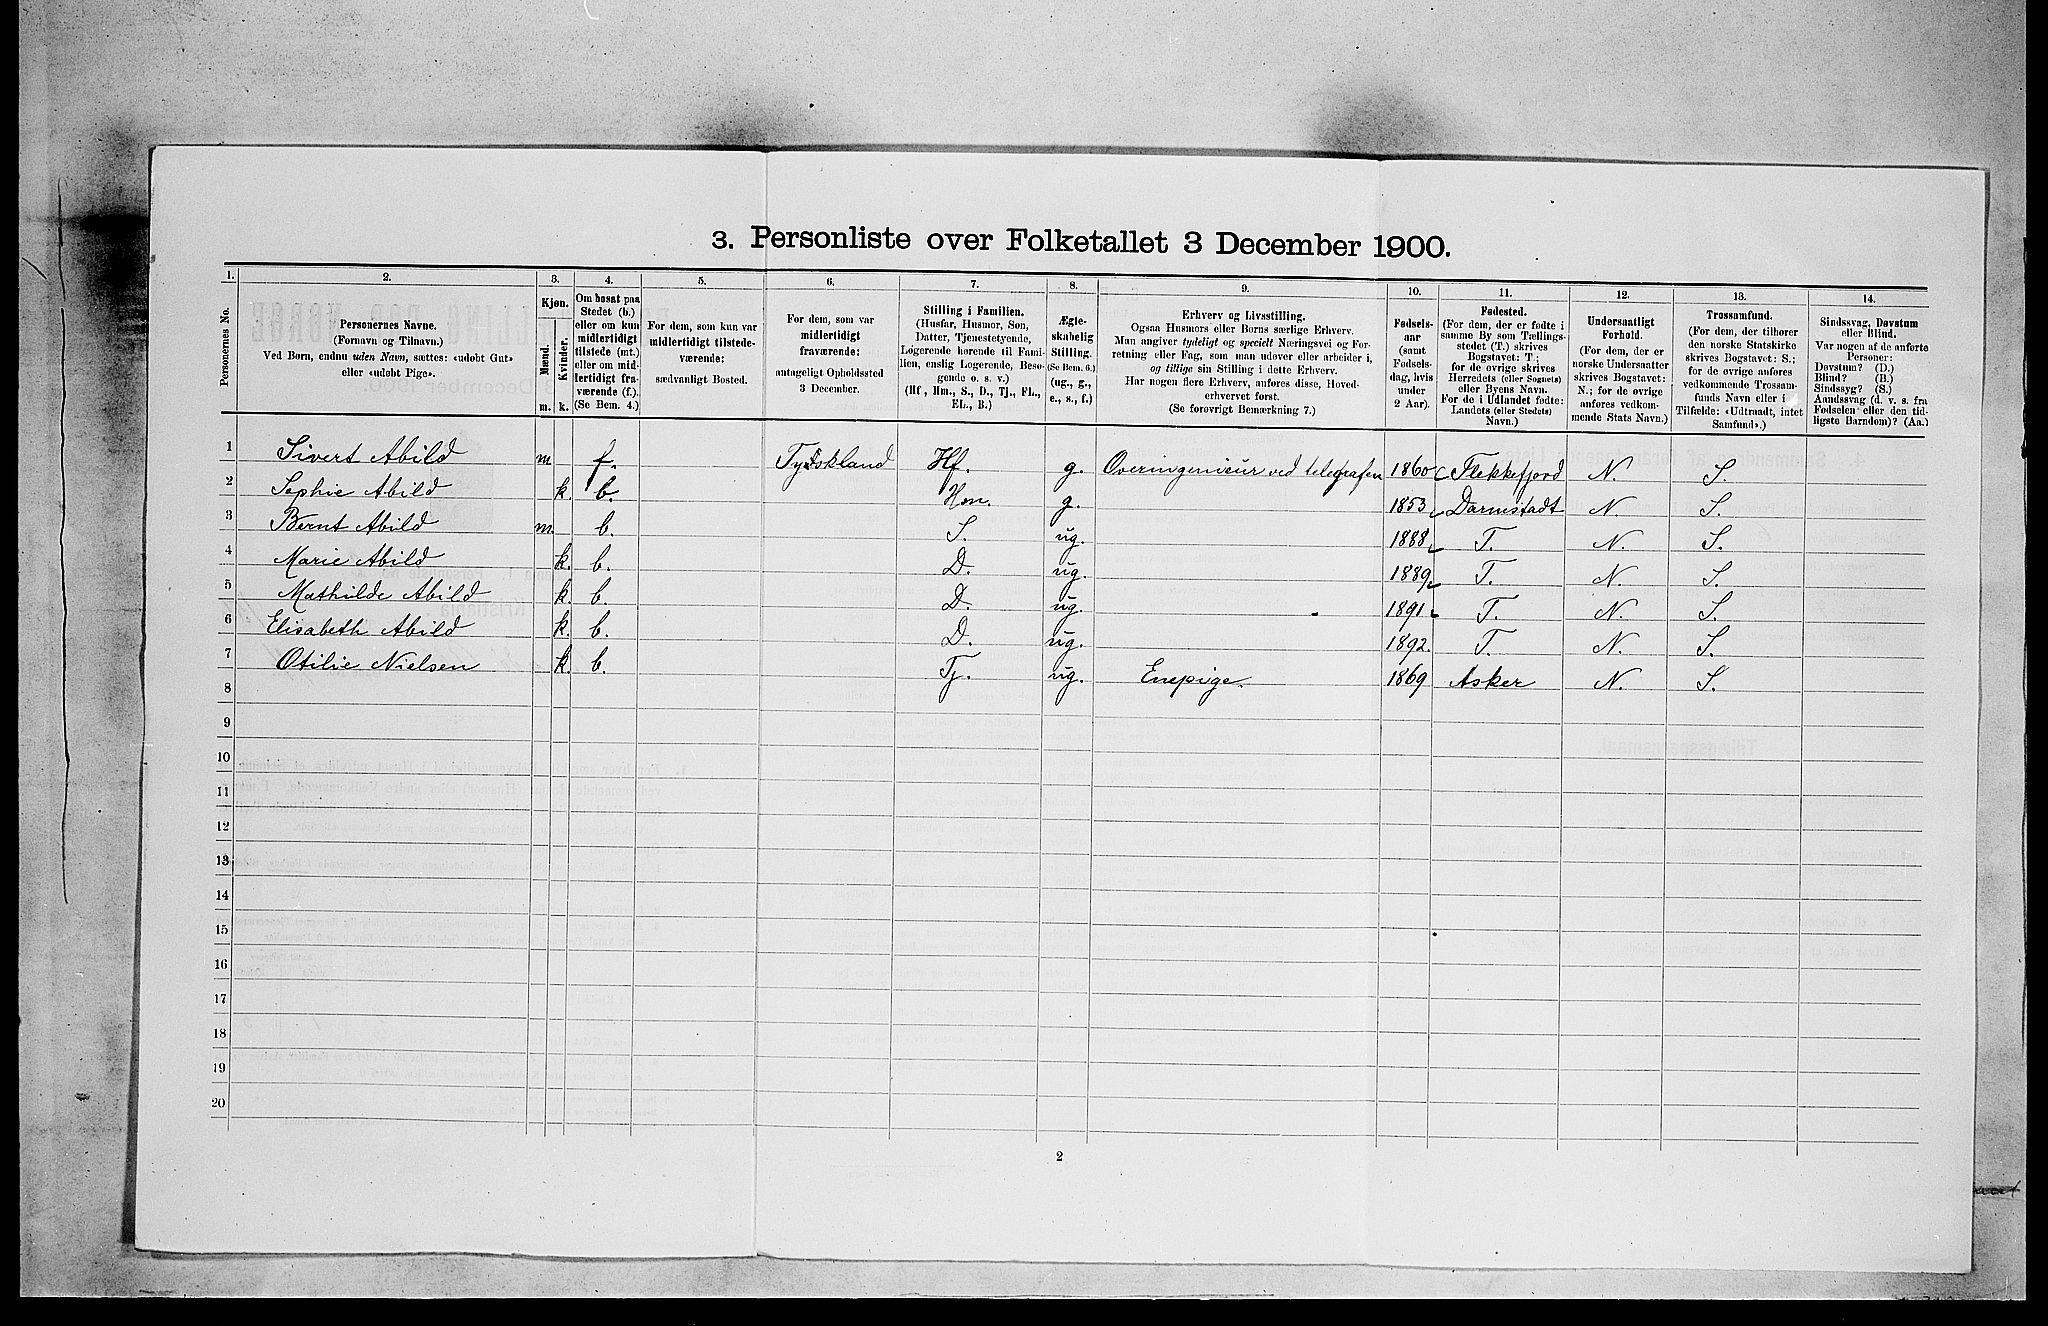 3. Personliste over Folketallet 3 December 1900.
1. 2. 3. 4. 5. 6. 7. 8. 9. 10. 11. 12. 13. 14.
Personernes No.
Personernes Navne.
(Fornavn og Tilnavn.)
Ved Børn, endnu uden Navn, sættes: «udøbt Gut»
eller «udøbt Pige».
Kjøn.
Mænd.
Kvinder.
m. k.
Om bosat paa
Stedet (b.)
eller om kun
midlertidigt
tilstede (mt.)
eller om mid-
lertidigt fra-
værende (f.).
(Se Bem. 4.)
For dem, som kun var
midlertidigt tilstede-
værende:
sædvanligt Bosted.
For dem, som var
midlertidigt
fraværende:
antageligt Opholdssted
3 December.
Stilling i Familien.
(Husfar, Husmor, Søn,
Datter, Tjenestetyende,
Logerende hørende til Fami-
lien, enslig Logerende, Besø-
gende o. s. v.)
(Hf, Hm., S., D., Tj., FL.,
EL., B.)
Ægte-
skabelig
Stilling.
(Se Bem. 6.)
(ug., g.,
e., s., f.)
Erhverv og Livsstilling.
Ogsaa Husmors eller Børns særlige Erhverv.
Man angiver tydeligt og specielt Næringsvei og For-
retning eller Fag, som man udøver eller arbeider i,
og tillige sin Stilling i dette Erhverv.
Har nogen flere Erhverv, anføres disse, Hoved-
erhvervet først.
(Se forøvrigt Bemærkning 7.)
Fødsels-
aar
(samt
Fødsels-
dag, hvis
under
2 Aar).
Fødested.
(For dem, der er fødte i
samme By som Tællings-
stedet (T.) skrives
Bogstavet: T;
for de øvrige skrives
Herredets (eller Sognets)
eller Byens Navn.
For de i Udlandet fødte:
Landets (eller Stedets)
Navn.)
Undersaatligt
Forhold.
(For dem, der er
norske Undersaatter
skrives Bogstavet:
N.; for de øvrige
anføres vedkom-
mende Stats Navn.)
Trossamfund.
(For dem, der tilhører
den norske Statskirke
skrives Bogstavet: S.;
for de øvrige anføres
vedkommende Trossam-
funds Navn eller i
Tilfælde: «Udtraadt, intet
Samfund».)
Sindssvag, Døvstum
eller Blind.
Var nogen af de anførte
Personer:
Døvstum? (D.)
Blind? (B.)
Sindssyg? (S.)
Aandssvag (d. v. s. fra
Fødselen eller den tid-
ligste Barndom)? (Aa.)
1 Sivert Abild m. f. Tyskland Hf. g. Overingeniør ved telegrafen 1860 Flekkefjord N. S.
2 Sophie Abild k. b. Hm. g. 1853 Darmstadt N. S.
3 Bernt Abild m. b. S. ug. 1888 T. N. S.
4 Marie Abild k. b. D. ug. 1889 T. N. S.
5 Mathilde Abild k. b. D. ug. 1891 T. N. S.
6 Elisabeth Abild k. b. D. ug. 1892. T. N. S.
7 Otilie Nielsen k. b. Tj. ug. Enepige. 1869 Asker N. S.
8
9
10
11
12
13
14
15
16
17
18
19
20
2